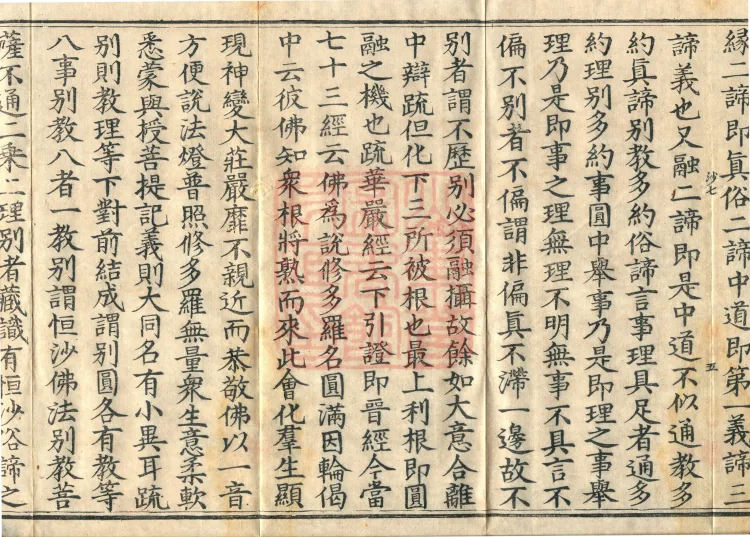 縁二諦即眞俗二諦中道即第一義諦三
諦義也又融二諦即是中道不似通教多
約眞諦別教多約俗諦言事理具足者通多
約理別多約事圓中舉事乃是即理之事舉
理乃是即事之理無理不明無事不具言不
偏不別者不偏謂非偏眞不滯一邊故不
別者謂不歷別必須融攝故餘如大意合離
中辯疏但化下三所被根也最上利根即圓
融之機也疏華嚴經云下引證即晉經今當
七十三經云佛爲說修多羅名圓滿因輪偈
中云彼佛知衆根將熟而來此會化羣生顯
現神變大莊嚴靡不親近而恭敬佛以一音
方便說法燈普照修多羅無量衆生意柔軟
悉蒙與授菩提記義則大同名有小異耳疏
別則教理等下對前結成謂別圓各有教等
八事別教八者一教別謂恒沙佛法別教菩
薩不通二乘二理別者藏識有恒沙俗諦之
五